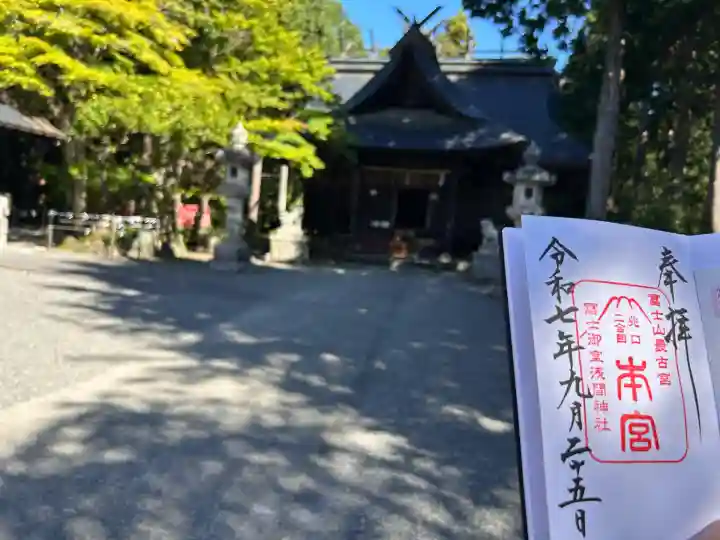 奉拝
冨士山最古宮
北口
二合目
本宮
冨士御室浅間神社
令和七年九月二十五日